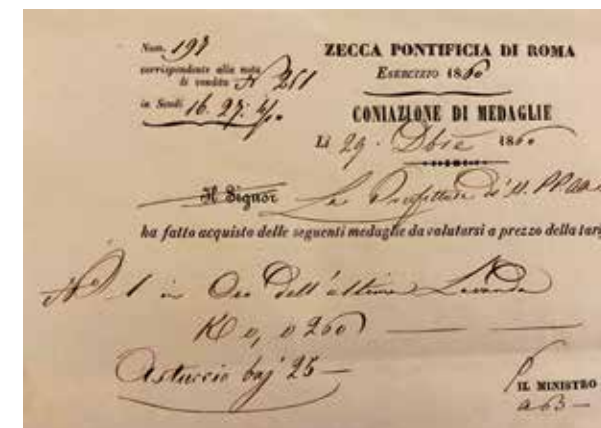 Num. 197
corrispondente alla nota
di vendita N 251
in Scudi 16. 27.
ZECCA PONTIFICIA DI ROMA
ESERCIZIO 1860
CONIAZIONE DI MEDAGLIE
Li 29. Dbre 1860
Il Signor La
ha fatto acquisto delle seguenti medaglie da valutarsi a prezzo della tarif
N. 1 in Oro dell'ultima Lavanda
K 0, 0260
Astuccio baj 25 —
IL MINISTRO